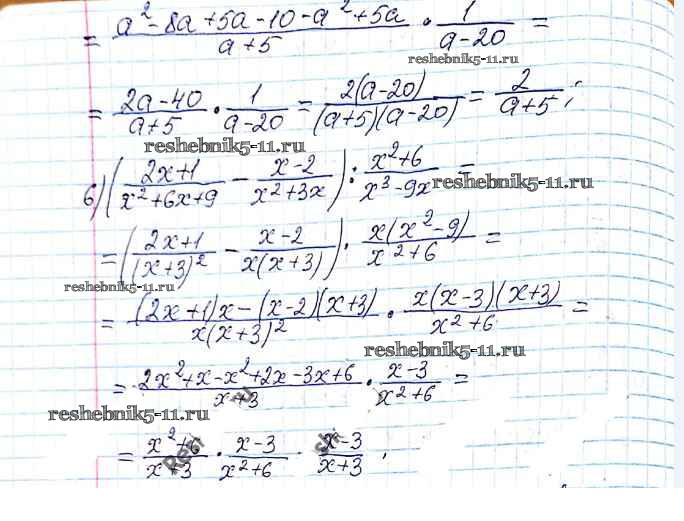 = (a² - 8a + 5a - 10 - a² + 5a)/(a + 5) · 1/(a - 20) =
reshebnik5-11.ru
= (2a - 40)/(a + 5) · 1/(a - 20) = 2(a - 20)/((a + 5)(a - 20)) = 2/(a + 5);
reshebnik5-11.ru
б) ((2x + 1)/(x² + 6x + 9) - (x - 2)/(x² + 3x)) : (x² + 6)/(x³ - 9x) =
reshebnik5-11.ru
= ((2x + 1)/(x + 3)² - (x - 2)/(x(x + 3))) · x(x² - 9)/(x² + 6) =
reshebnik5-11.ru
= ((2x + 1)x - (x - 2)(x + 3))/(x(x + 3)²) · x(x - 3)(x + 3)/(x² + 6) =
reshebnik5-11.ru
= (2x² + x - x² + 2x - 3x + 6)/(x + 3) · (x - 3)/(x² + 6) =
reshebnik5-11.ru
= (x² + 6)/(x + 3) · (x - 3)/(x² + 6) = (x - 3)/(x + 3).